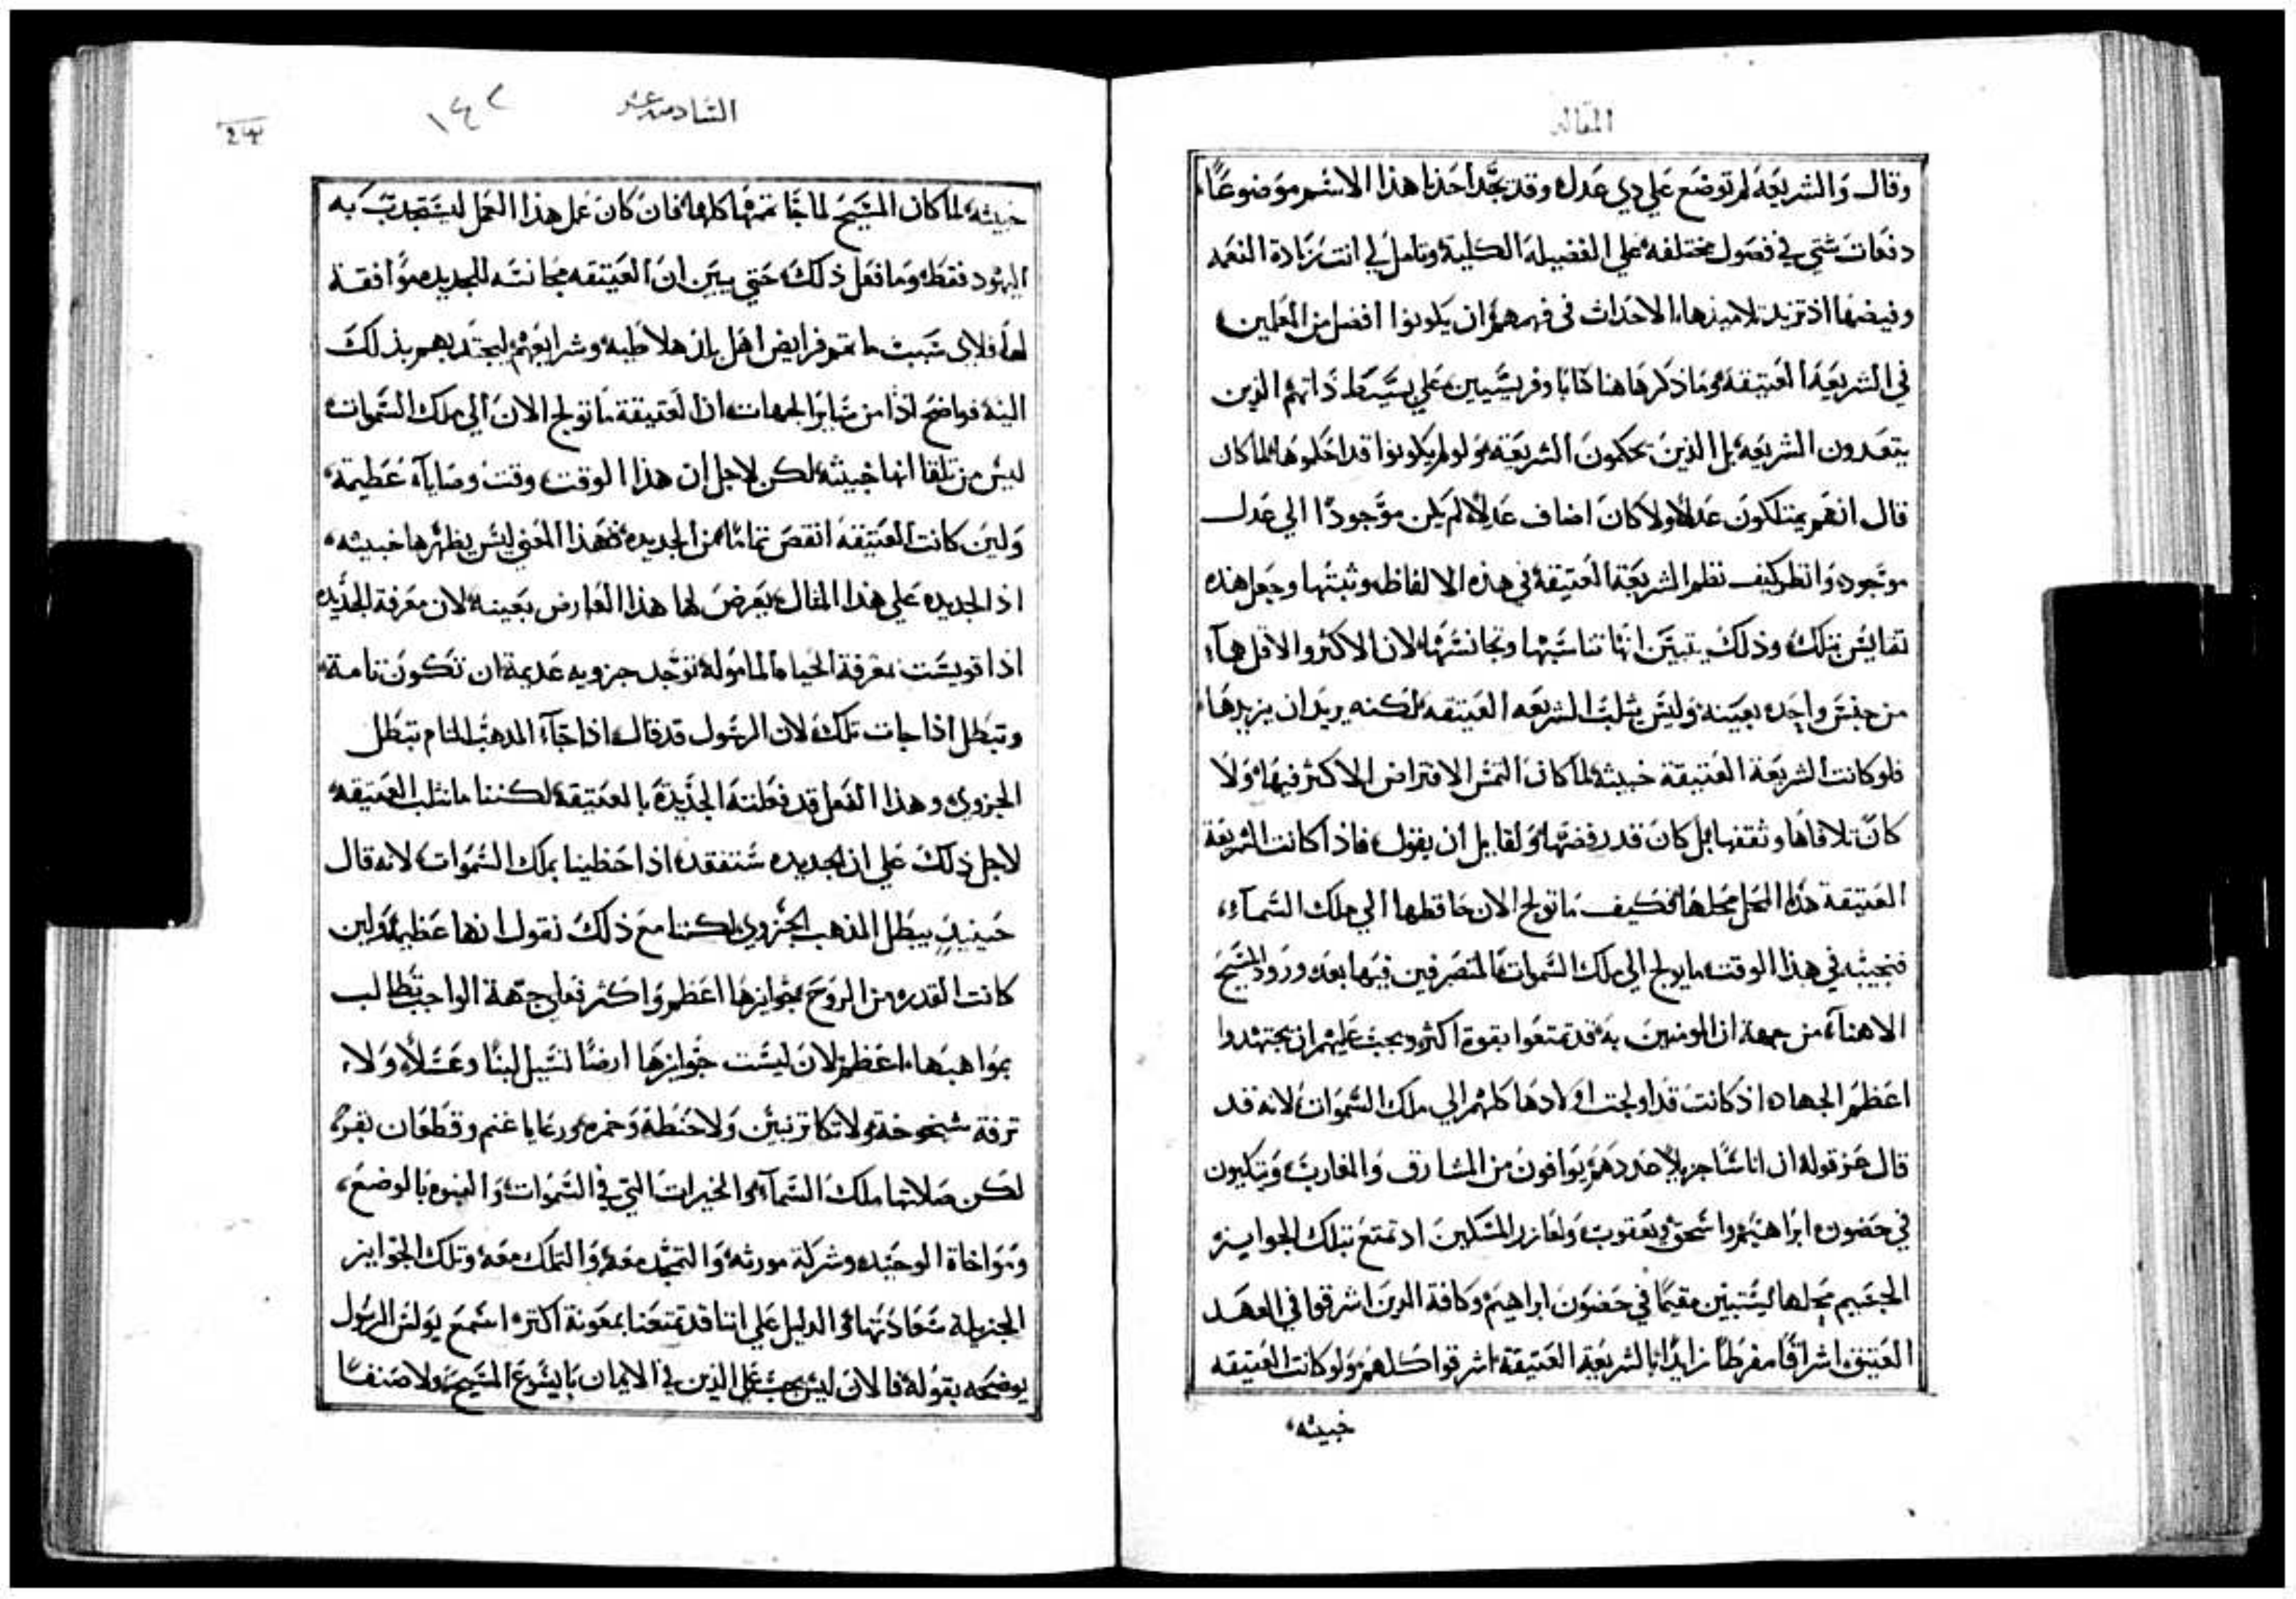 المقاله
وقال والشريعة لم توضع علي دي عدل وقد تجد احدنا هذا الاسم موضوعًا
دفعات شتي في فصول مختلفه علي الفضيله الكلية وتامل لي انت زيادة النعمه
وفيضها اذ تريد تلاميذها الاحداث في فهمهم ان يكونوا افضل من المعلمين
في الشريعة العتيقة وما ذكرها هنا كتابا وفريسيين علي بسيط ذاتهم الذين
يتعدون الشريعه بل الذين يحكمون الشريعة ولو لم يكونوا قد احكموها لما كان
قال انهم يمتلكون عدلاً ولا كان اضاف عدلاً لم يكن موجودًا الي عدل
موجود وانظر كيف نظم الشريعة العتيقة في هذه الالفاظ وثبتها وجعل هذه
تقايس بتلك وذلك يتبين انها تناسبها وتجانسها لان الاكثر والاقل هما
من جنس واحد بعينه وليس يثلب الشريعه العتيقه لكنه يريد ان يزيدها
فلو كانت الشريعة العتيقة خبيثه لما كان التمس الافتراض الاكثر فيها ولا
كان تلافاها وثقفها بل كان قد رفضها ولقايل ان يقول فاذا كانت الشريعة
العتيقة هذا المحل محلها فكيف ما تولج الان حافظها الي ملك السماء
فنجيبه في هذا الوقت ما يولج الي ملك السموات المتصرفين فيها بعد ورود المسيح
الاهنا من جهة ان المومنين به قد تمتعوا بقوة اكثر ويجب عليهم ان يجتهدوا
اعظم الجهاد اذ كانت قد اولجت اولادها كلهم الي ملك السموات لانه قد
قال عز قوله ان اناسًا جزيلاً عددهم يوافون من المشارق والمغارب ويتكيون
في حضون ابراهيم واسحق ويعقوب ولعازر المسكين اذ تمتع بتلك الجوايز
الجسيم محلها ليستبين مقيمًا في حضون ابراهيم وكافة الدين اشرقوا في العهد
العتيق اشراقًا مفرطًا زايدًا بالشريعة العتيقة اشرقوا كلهم ولو كانت العتيقه
خبيثه
السادسه عشر
١٤٢
خبيثه لما كان المسيح لما جا تممها كلها فان كان عمل هذا العمل ليستجدب به
اليهود فقط وما فعل ذلك حتي يبين ان العتيقه مجانسه للجديده موافقة
لها فلاي سبب ما تمم فرايض اهل بلاد هلاطيه وشرايعهم ليجتدبهم بذلك
اليه فواضح اذًا من ساير الجهات ان العتيقة ما تولج الان الي ملك السموات
ليس من تلقا انها خبيثه لكن لاجل ان هذا الوقت وقت وصاياه عظيمة
ولين كانت العتيقه انقص تمامًا من الجديده فهذا المعني ليس يظهرها خبيثه
اذ الجديده علي هذا المثال يعرض لها هذا العارض بعينه لان معرفة الجديده
اذا قويست بمعرفة الحياه المامولة توجد جزويه عديمة ان تكون تامة
وتبطل اذا جات تلك لان الرسول قد قال اذا جآء المدهب التام تبطل
الجزوي وهذا الفعل قد فعلته الجديدة بالعتيقة لكننا ما نثلب العتيقه
لاجل ذلك علي ان الجديده ستفقد اذا حظينا بملك السموات لانه قال
حينيذٍ يبطل المذهب الجزوي لكننا مع ذلك نقول انها عظيمة ولين
كانت القدره من الروح وجوايزها اعظم واكثر فعلي جهة الواجب تطالب
بمواهبها اعظم لان ليست جوايزها ارضًا تسيل لبنًا وعسلاً ولا
ترفة شيخوخة ولا تكاتر بنين ولا حنطة وخمر ورعايا غنم وقطعان بقر
لكن صلاتها ملك السمآء والخيرات التي في السموات والبنوة بالوضع
ومواخاة الوحيد وشركة مورثه والتمجد معه والتملك معه وتلك الجوايز
الجزيلة سعادتها والدليل علي اننا قد تمتعنا بمعونة اكتر اسمع بولس الرسول
يوضحه بقوله فالان ليس يجب علي الذين في الايمان بايسوع المسيح ولا صنفًا